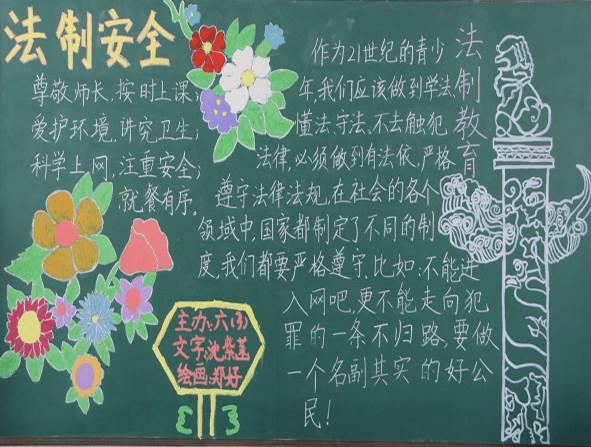 法制安全
尊敬师长,按时上课;
爱护环境,讲究卫生;
科学上网,注重安全;
就餐有序。
法制教育
作为21世纪的青少
年,我们应该做到学法,
懂法,守法,不去触犯
法律,必须做到有法依,严格
遵守法律法规,在社会的各个
领域中,国家都制定了不同的制
度,我们都要严格遵守,比如:不能进
入网吧,更不能走向犯
罪的一条不归路,要做
一个名副其实的好公
民!
主办:六(3)
文字:沈紫莲
绘画:郑好